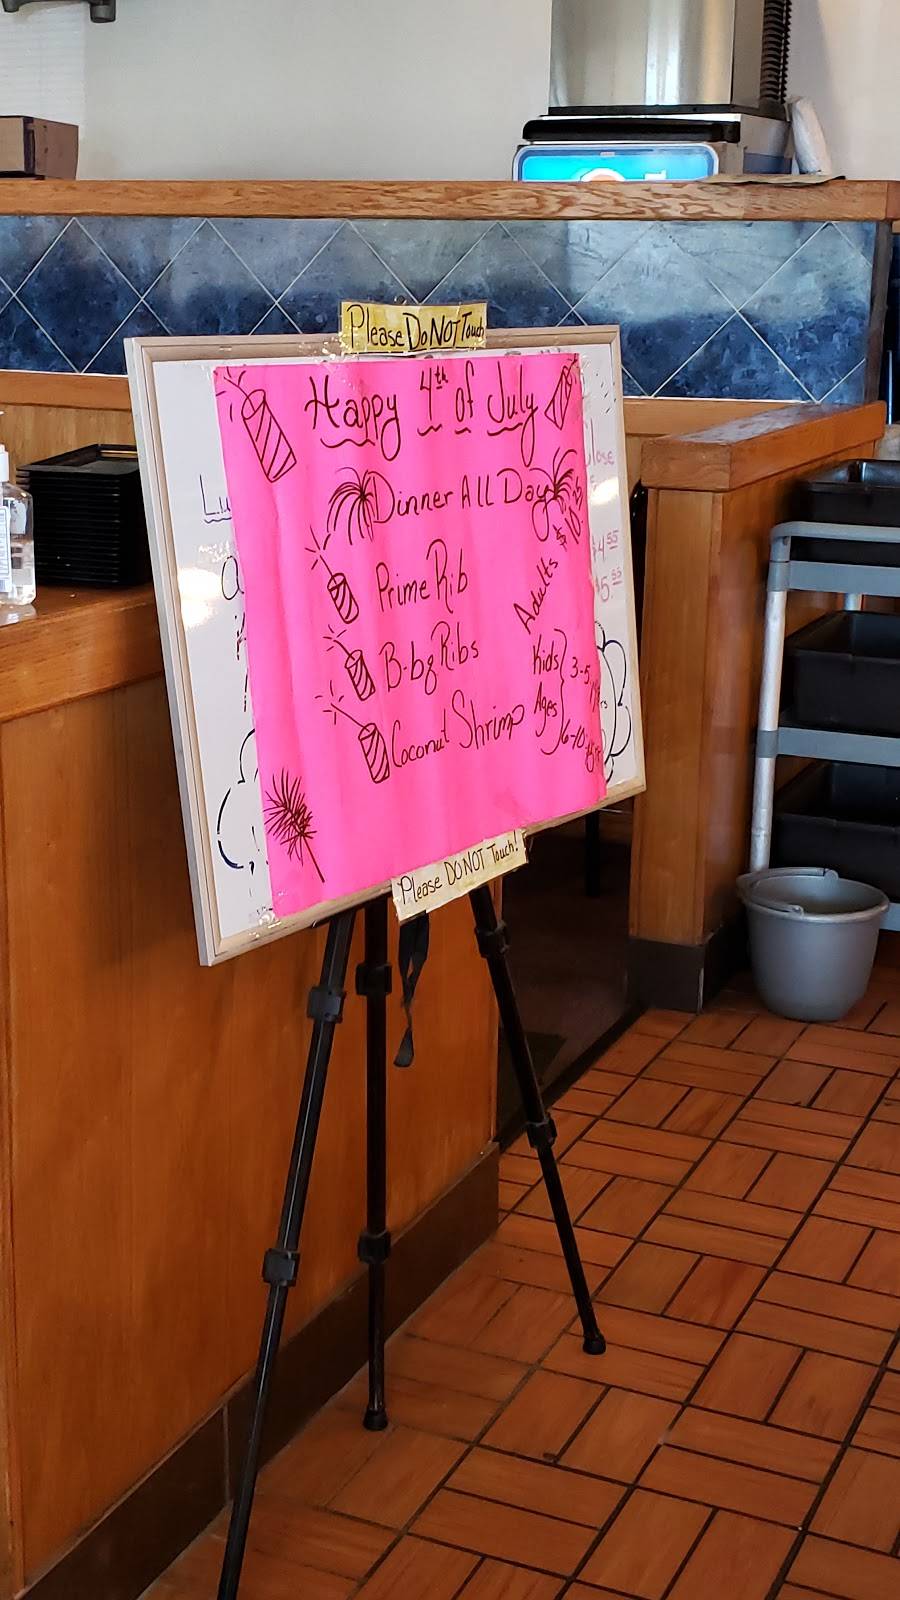 Please Do NOT Touch
Happy 4th of July
Dinner All Day
Prime Rib
B-bq Ribs
Coconut Shrimp
Adults
Kids
Ages
3-5
6-10
$4.55
Please DO NOT Touch!